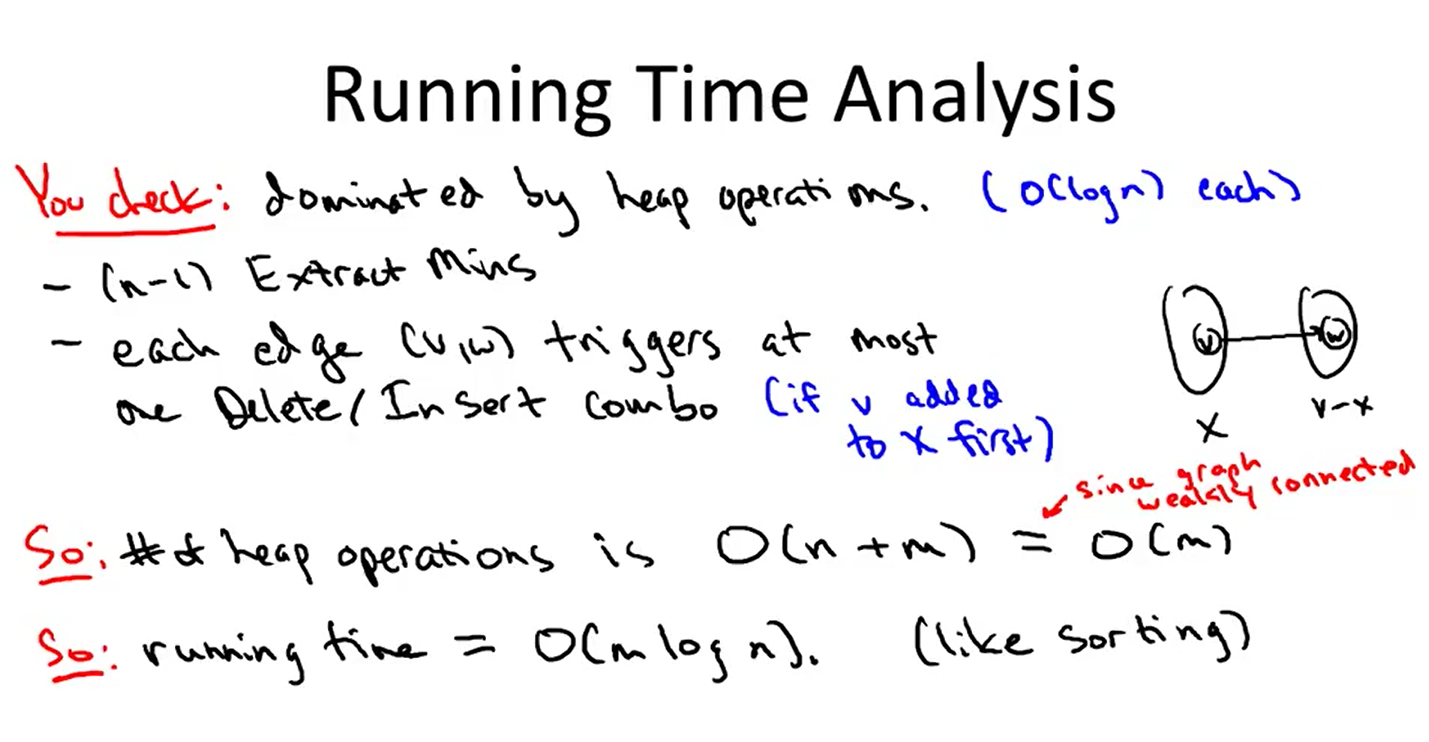 Running Time Analysis
You check: dominated by heap operations. (O(log n) each)
- (n-1) Extract Mins
- each edge (v,w) triggers at most
one Delete/Insert combo (if v added
to X first)
v w
X V-X
since graph
weakly connected
So: # of heap operations is O(n+m) = O(m)
So: running time = O(m log n). (like sorting)